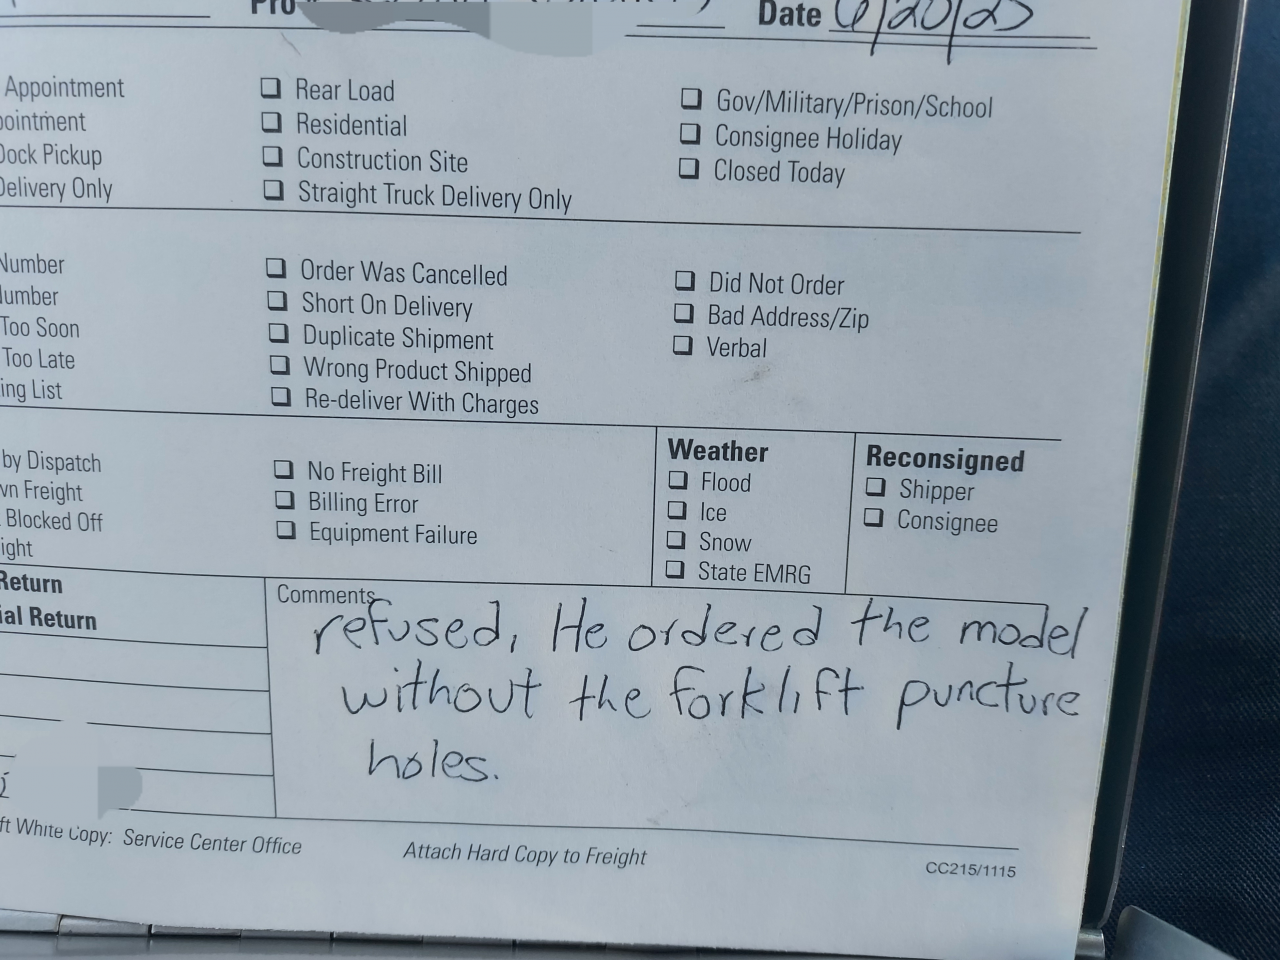 Pro Date 6/20/25
Appointment Rear Load Gov/Military/Prison/School
ointment Residential Consignee Holiday
Dock Pickup Construction Site Closed Today
Delivery Only Straight Truck Delivery Only
Number Order Was Cancelled Did Not Order
umber Short On Delivery Bad Address/Zip
Too Soon Duplicate Shipment Verbal
Too Late Wrong Product Shipped
ing List Re-deliver With Charges
by Dispatch No Freight Bill
wn Freight Billing Error
Blocked Off Equipment Failure
ight
Weather
Flood
Ice
Snow
State EMRG
Reconsigned
Shipper
Consignee
Return
ial Return
Comments
refused, He ordered the model
without the forklift puncture
holes.
ft White Copy: Service Center Office Attach Hard Copy to Freight CC215/1115